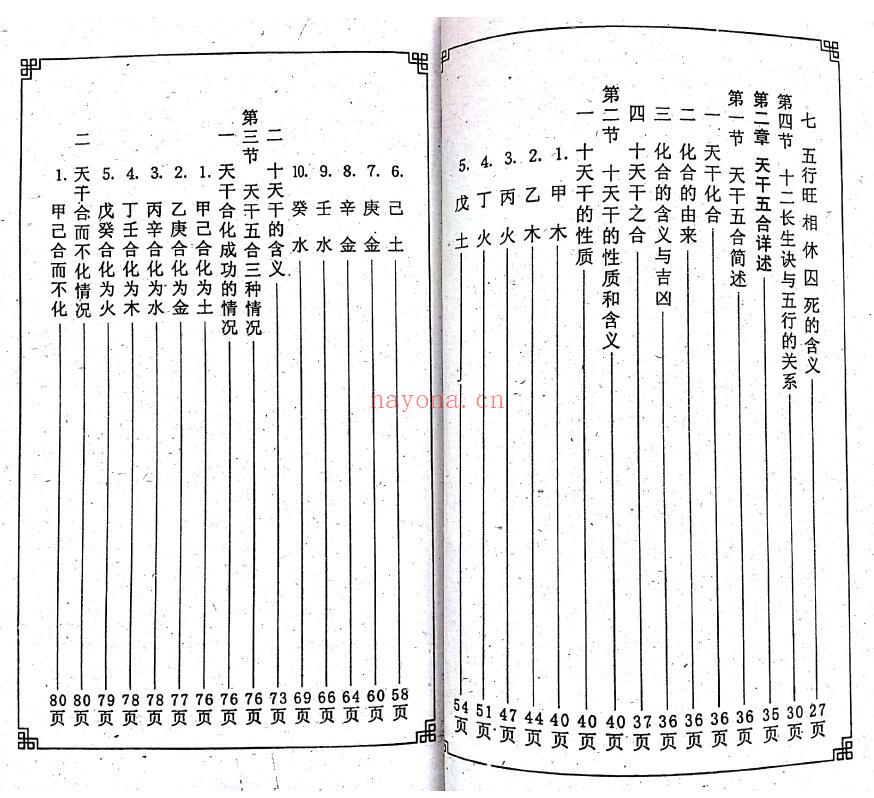 七 五行旺相休囚死的含义 27页
第四节 十二长生诀与五行的关系 30页
第二章 天干五合详述 35页
第一节 天干五合简述 36页
一 天干化合 36页
二 化合的由来 36页
三 化合的含义与吉凶 36页
四 十天干之合 37页
第二节 十天干的性质和含义 40页
一 十天干的性质 40页
1. 甲木 40页
2. 乙木 44页
3. 丙火 47页
4. 丁火 51页
5. 戊土 54页
6. 己土 58页
7. 庚金 60页
8. 辛金 64页
9. 壬水 66页
10. 癸水 69页
二 十天干的含义 73页
第三节 天干五合三种情况 76页
一 天干合化成功的情况 76页
1. 甲己合化为土 76页
2. 乙庚合化为金 77页
3. 丙辛合化为水 78页
4. 丁壬合化为木 78页
5. 戊癸合化为火 79页
二 天干合而不化情况 80页
1. 甲己合而不化 80页
nayona.cn